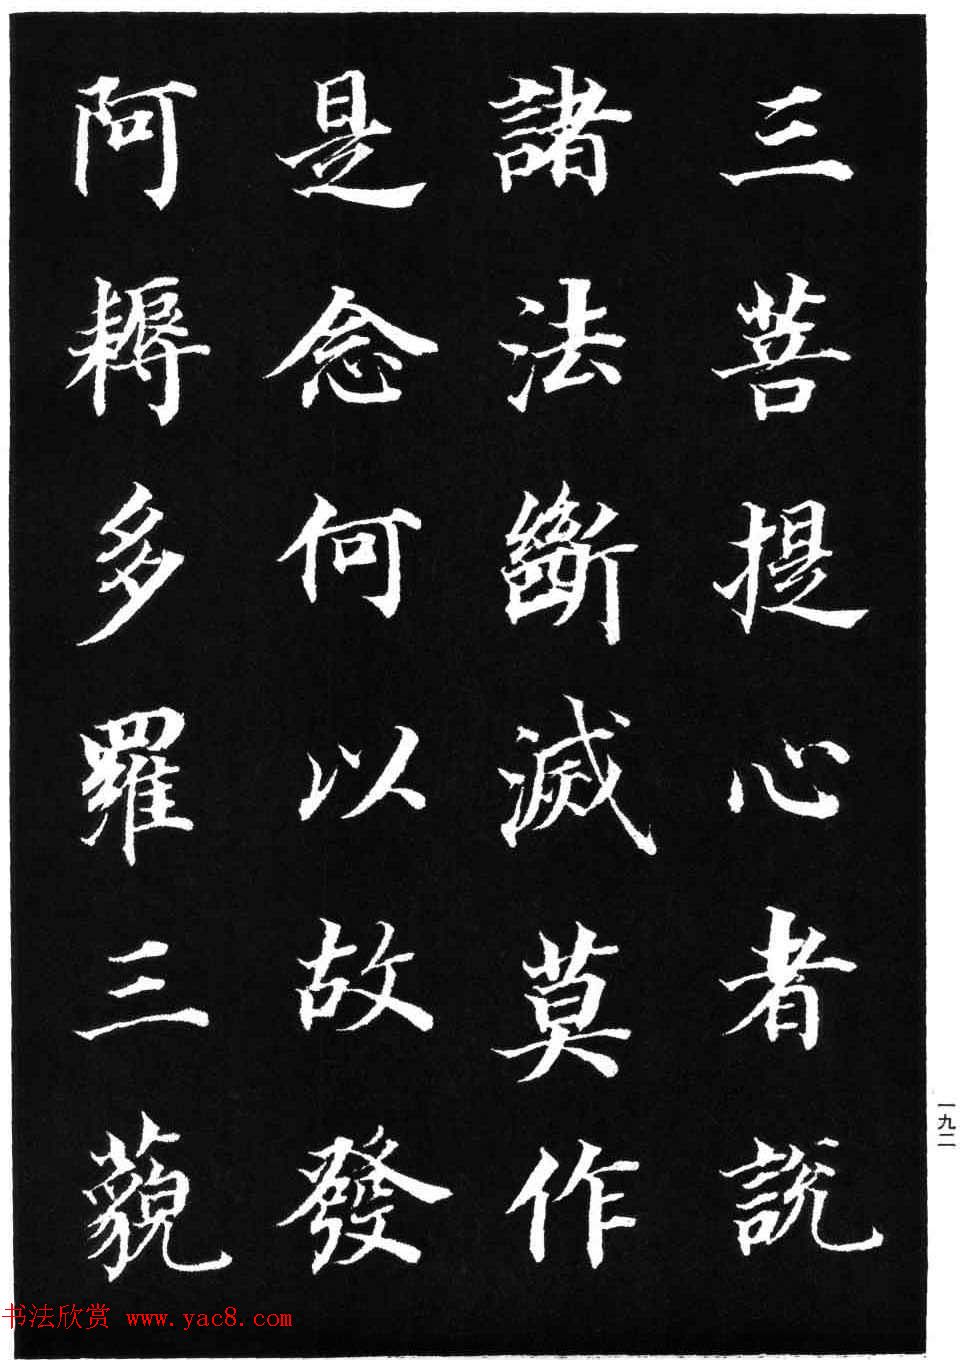 三菩提心者說
諸法斷滅莫作
是念何以故發
阿耨多羅三藐
一九二
书法欣赏 www.yac8.com